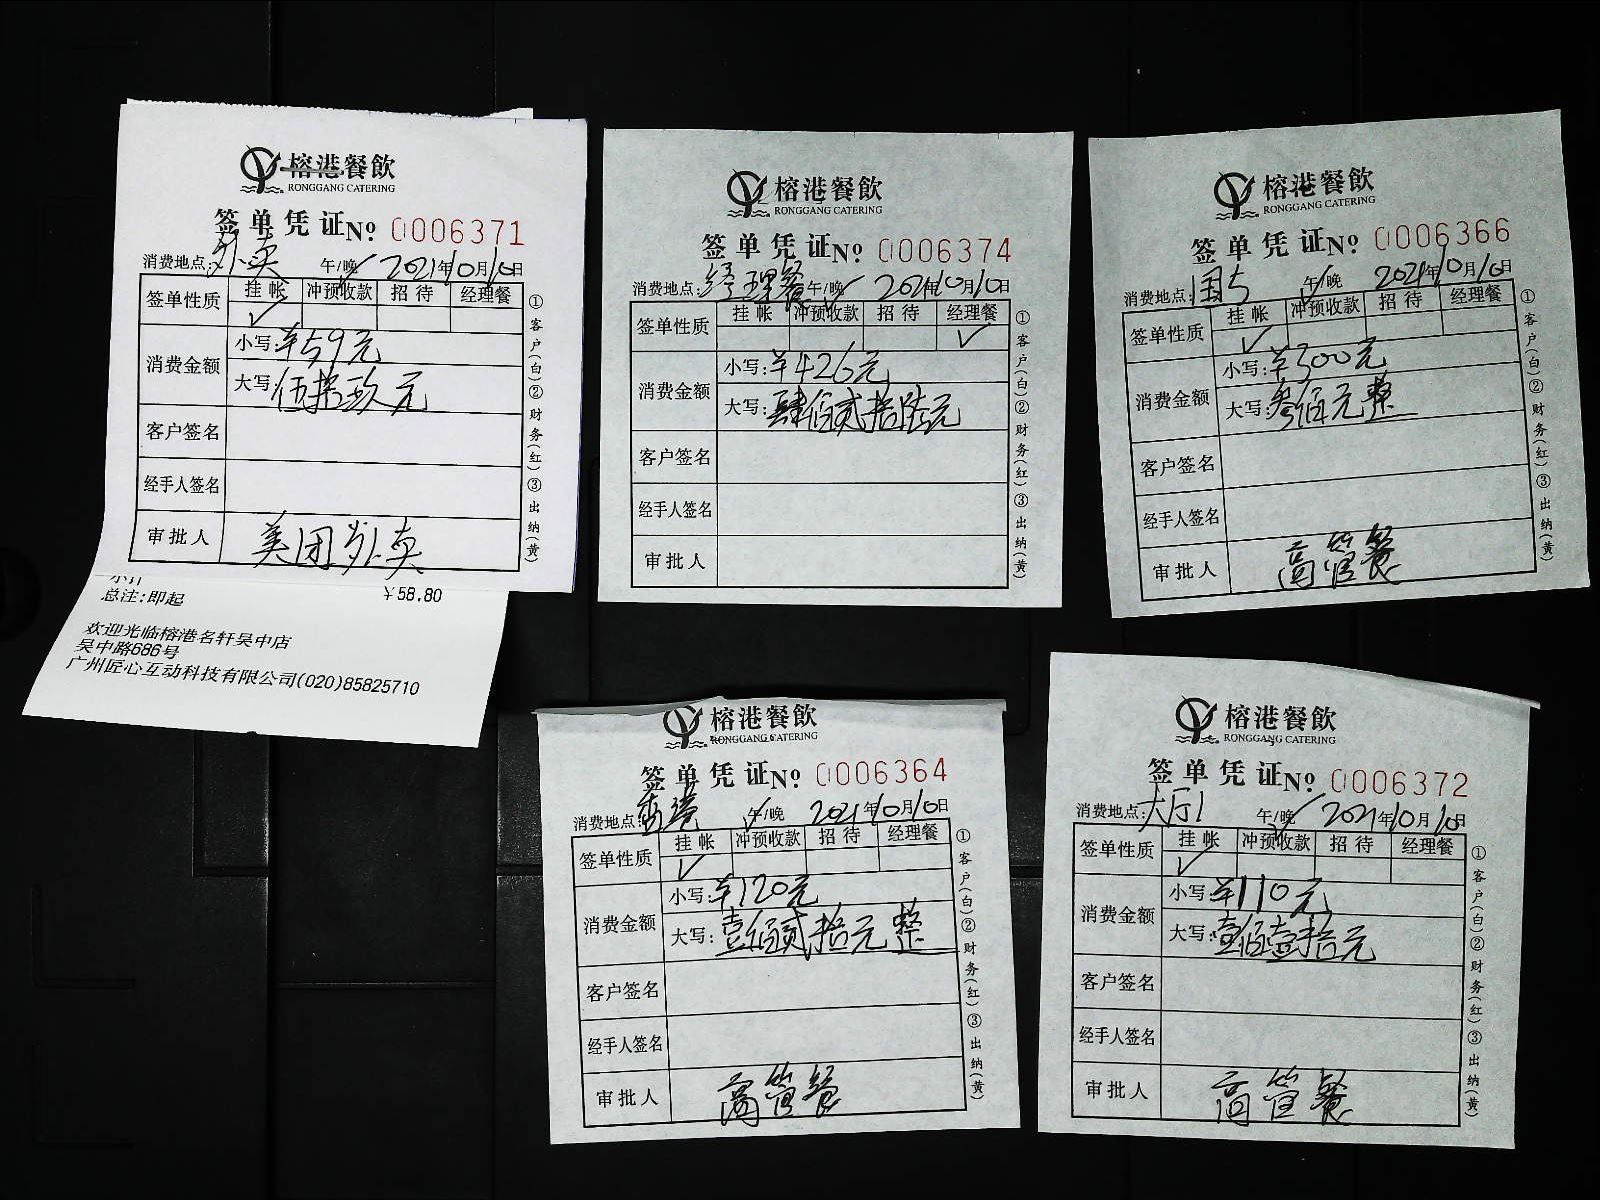 榕港餐飲
RONGGANG CATERING
签单凭证№ 0006371
消费地点:外卖 午/晚✓ 2021年10月10日
签单性质 挂帐 冲预收款 招待 经理餐
✓
消费金额 小写:¥59元
大写:伍拾玖元
客户签名
经手人签名
审批人 美团外卖
①客户(白)②财务(红)③出纳(黄)
小计 ¥58.80
总注:即起
欢迎光临榕港名轩吴中店
吴中路686号
广州匠心互动科技有限公司(020)85825710
榕港餐飲
RONGGANG CATERING
签单凭证№ 0006374
消费地点:经理餐 午/晚✓ 2021年10月10日
签单性质 挂帐 冲预收款 招待 经理餐
✓
消费金额 小写:¥426元
大写:肆佰贰拾陆元
客户签名
经手人签名
审批人
①客户(白)②财务(红)③出纳(黄)
榕港餐飲
RONGGANG CATERING
签单凭证№ 0006366
消费地点:国5 午✓/晚 2021年10月10日
签单性质 挂帐 冲预收款 招待 经理餐
✓
消费金额 小写:¥300元
大写:叁佰元整
客户签名
经手人签名
审批人 高管餐
①客户(白)②财务(红)③出纳(黄)
榕港餐飲
RONGGANG CATERING
签单凭证№ 0006364
消费地点: 午✓/晚 2021年10月10日
签单性质 挂帐 冲预收款 招待 经理餐
✓
消费金额 小写:¥120元
大写:壹佰贰拾元整
客户签名
经手人签名
审批人 高管餐
①客户(白)②财务(红)③出纳(黄)
榕港餐飲
RONGGANG CATERING
签单凭证№ 0006372
消费地点:大厅1 午/晚✓ 2021年10月10日
签单性质 挂帐 冲预收款 招待 经理餐
✓
消费金额 小写:¥110元
大写:壹佰壹拾元
客户签名
经手人签名
审批人 高管餐
①客户(白)②财务(红)③出纳(黄)